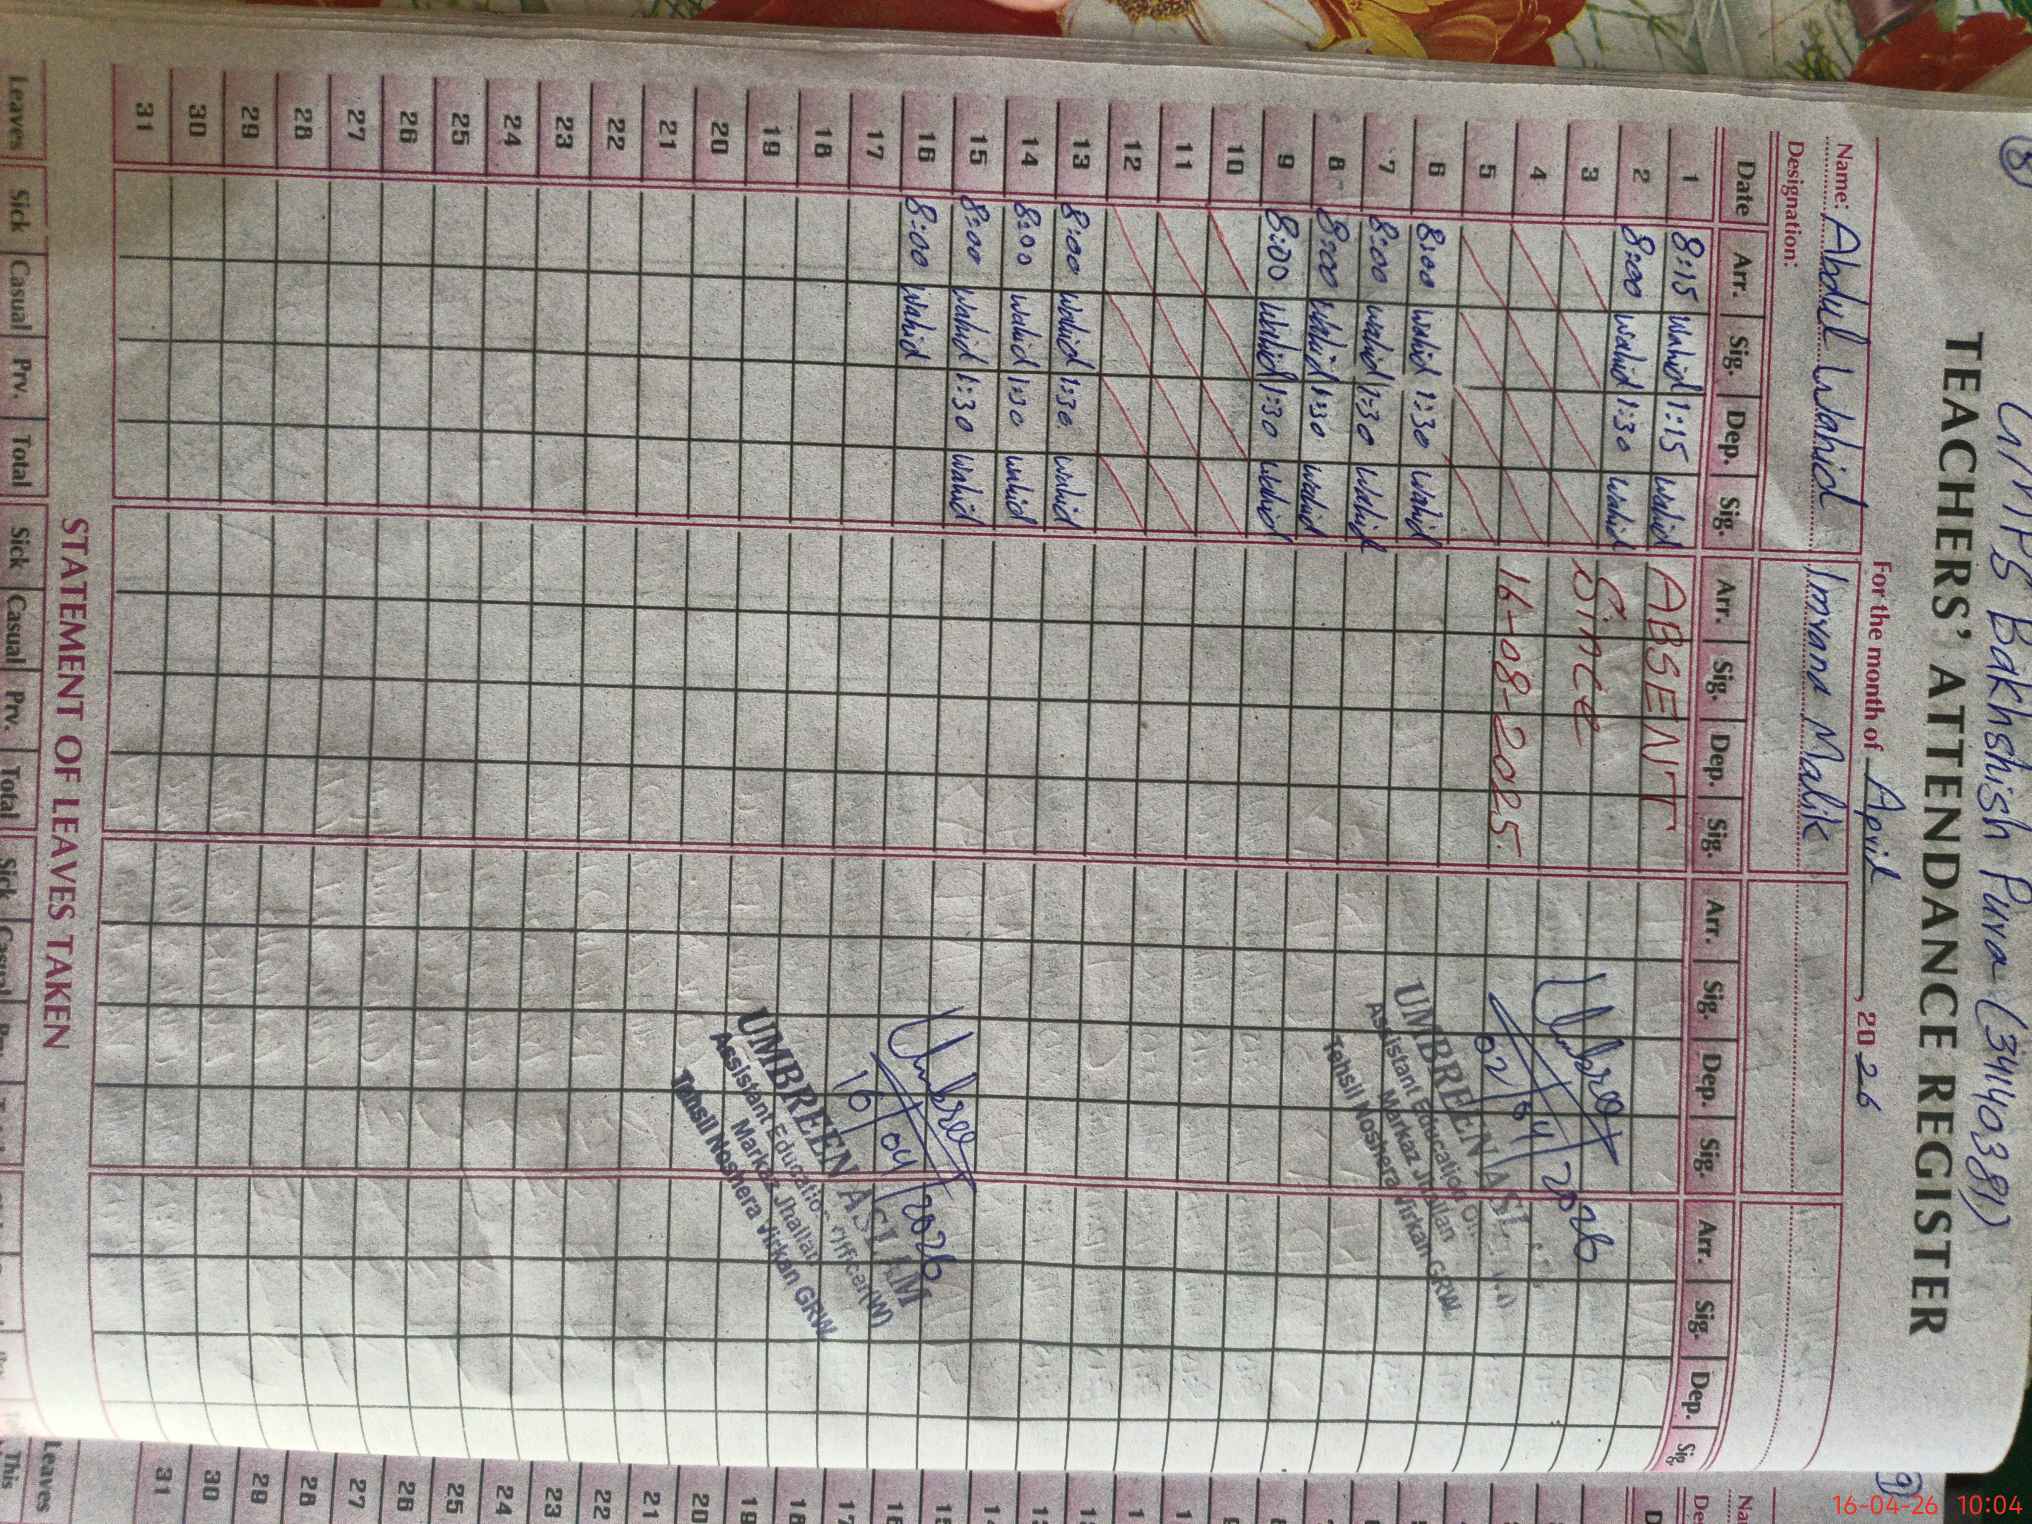 8
GMPS Bakhshish Pura (34140381)
TEACHERS' ATTENDANCE REGISTER
For the month of April, 2026
Name: Abdul Wahid Imrana Malik
Designation:
Date Arr. Sig. Dep. Sig. Arr. Sig. Dep. Sig. Arr. Sig. Dep. Sig. Arr. Sig. Dep. Sig.
1 8:15 Wahid 1:15 Wahid ABSENT
2 8:00 Wahid 1:30 Wahid
3 Since
4
5 16-08-2025.
6 8:00 Wahid 1:30 Wahid
7 8:00 Wahid 1:30 Wahid
8 8:00 Wahid 1:30 Wahid
9 8:00 Wahid 1:30 Wahid
10
11
12
13 8:00 Wahid 1:30 Wahid
14 8:00 Wahid 1:30 Wahid
15 8:00 Wahid 1:30 Wahid
16 8:00 Wahid
17
18
19
20
21
22
23
24
25
26
27
28
29
30
31
02/04/2026
UMBREEN ASL
Assistant Education
Markaz Jhallan
Tehsil Noshera Virkan GRW.
16/04/2026
UMBREEN ASLAM
Assistant Education Officer(W)
Markaz Jhallan
Tehsil Noshera Virkan GRW.
STATEMENT OF LEAVES TAKEN
Leaves Sick Casual Prv. Total Sick Casual Prv. Total Sick Casual
9
15
16
17
18
19
20
21
22
23
24
25
26
27
28
29
30
31
Leaves
This
16-04-26 10:04